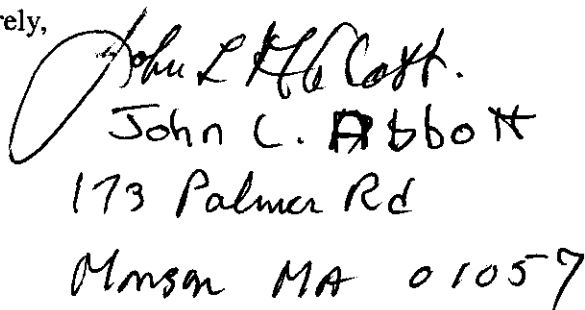 rely,
John L Abbott.
John C. Abbott
173 Palmer Rd
Monson MA 01057